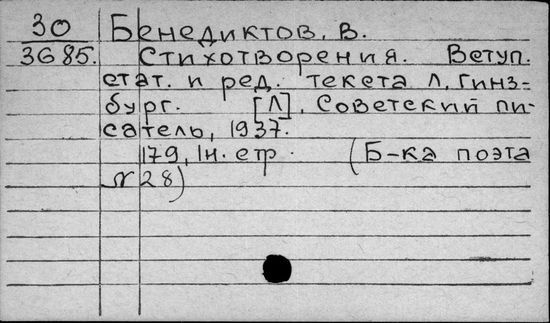 30 Бенедиктов, В.
3685. Стихотворения. Вступ.
стат. и ред. текста Л. Гинз-
бург. [Л], Советский пи-
сатель, 1937.
179, 1н. стр. (Б-ка поэта
№ 28)